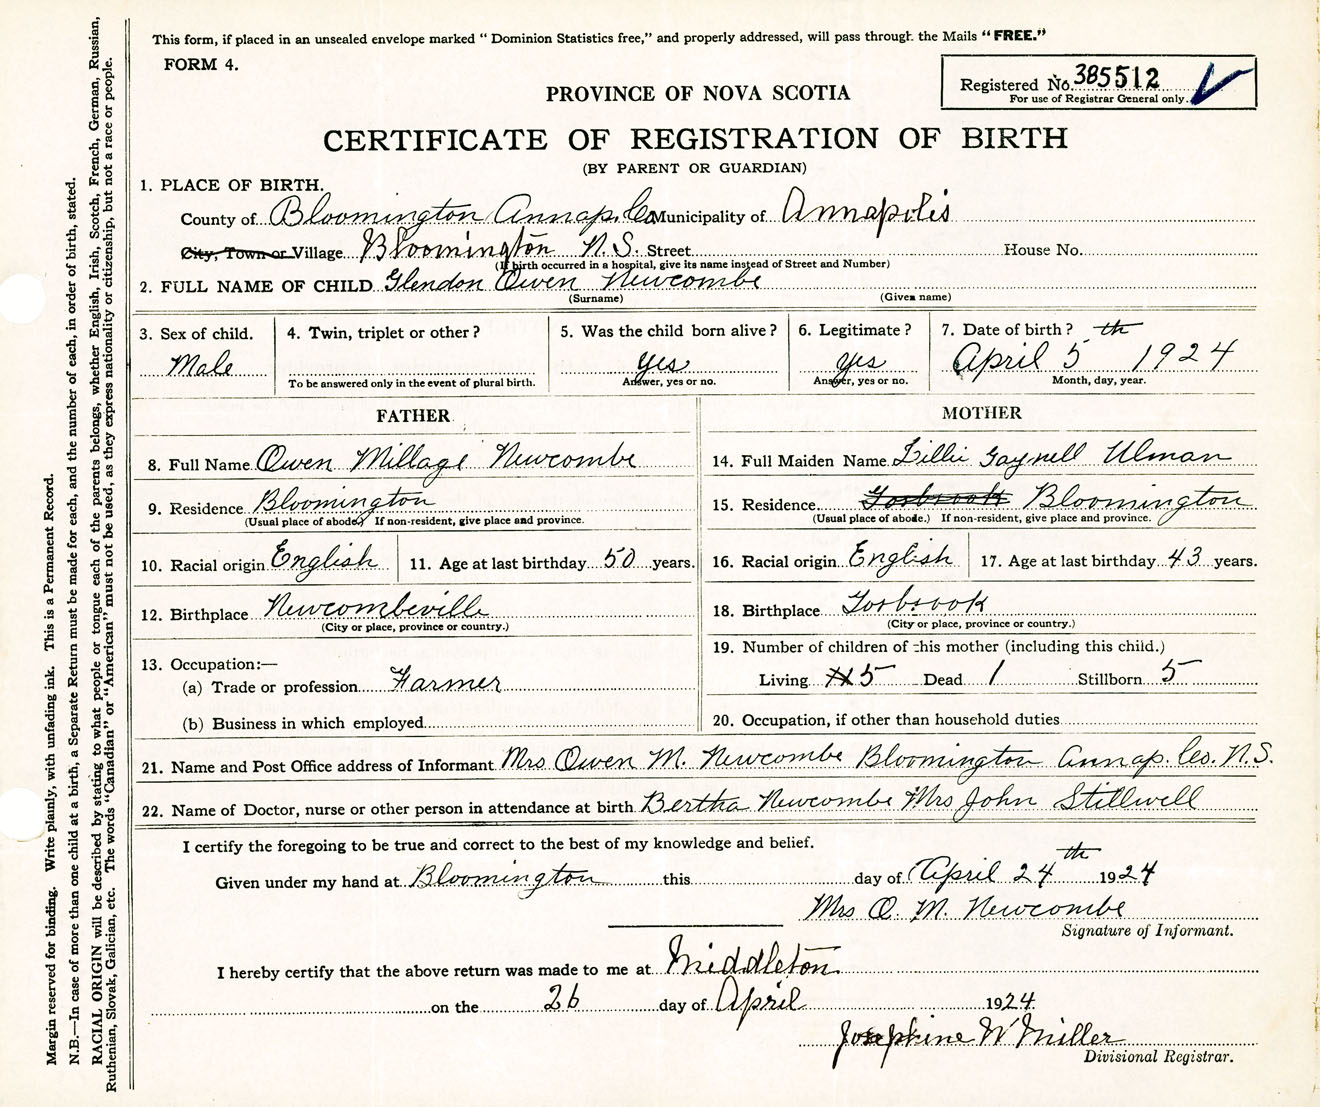 This form, if placed in an unsealed envelope marked "Dominion Statistics free," and properly addressed, will pass through the Mails "FREE."
FORM 4.
Registered No. 385512
For use of Registrar General only.
PROVINCE OF NOVA SCOTIA
CERTIFICATE OF REGISTRATION OF BIRTH
(BY PARENT OR GUARDIAN)
1. PLACE OF BIRTH.
County of Bloomington Annap. Co. Municipality of Annapolis
City, Town or Village Bloomington N.S. Street House No.
(If birth occurred in a hospital, give its name instead of Street and Number)
2. FULL NAME OF CHILD Glendon Owen Newcombe
(Surname) (Given name)
3. Sex of child. 4. Twin, triplet or other? 5. Was the child born alive? 6. Legitimate? 7. Date of birth?
Male yes yes April 5th 1924
To be answered only in the event of plural birth. Answer, yes or no. Answer, yes or no. Month, day, year.
FATHER MOTHER
8. Full Name Owen Millage Newcombe 14. Full Maiden Name Lillie Gaynell Ulman
9. Residence Bloomington 15. Residence Torbrook Bloomington
(Usual place of abode.) If non-resident, give place and province. (Usual place of abode.) If non-resident, give place and province.
10. Racial origin English 11. Age at last birthday 50 years. 16. Racial origin English 17. Age at last birthday 43 years.
12. Birthplace Newcombeville 18. Birthplace Torbrook
(City or place, province or country.) (City or place, province or country.)
13. Occupation:— 19. Number of children of this mother (including this child.)
(a) Trade or profession Farmer Living 5 Dead 1 Stillborn 5
(b) Business in which employed 20. Occupation, if other than household duties
21. Name and Post Office address of Informant Mrs Owen M. Newcombe Bloomington Annap. Co. N.S.
22. Name of Doctor, nurse or other person in attendance at birth Bertha Newcombe Mrs John Stillwell
I certify the foregoing to be true and correct to the best of my knowledge and belief.
Given under my hand at Bloomington this day of April 24th 1924
Mrs O. M. Newcombe
Signature of Informant.
I hereby certify that the above return was made to me at Middleton
on the 26 day of April 1924
Josephine W Miller
Divisional Registrar.
Margin reserved for binding. Write plainly, with unfading ink. This is a Permanent Record.
N.B.—In case of more than one child at a birth, a Separate Return must be made for each, and the number of each, in order of birth, stated.
RACIAL ORIGIN will be described by stating to what people or tongue each of the parents belongs, whether English, Irish, Scotch, French, German, Russian,
Ruthenian, Slovak, Galician, etc. The words "Canadian" or "American" must not be used, as they express nationality or citizenship, but not a race or people.